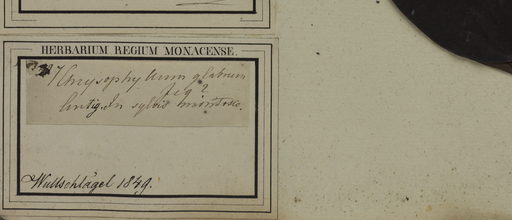 HERBARIUM REGIUM MONACENSE.
Chrysophyllum glabrum
Jcq?
Antig. In sylvis montosis.
Wullschlägel 1849.